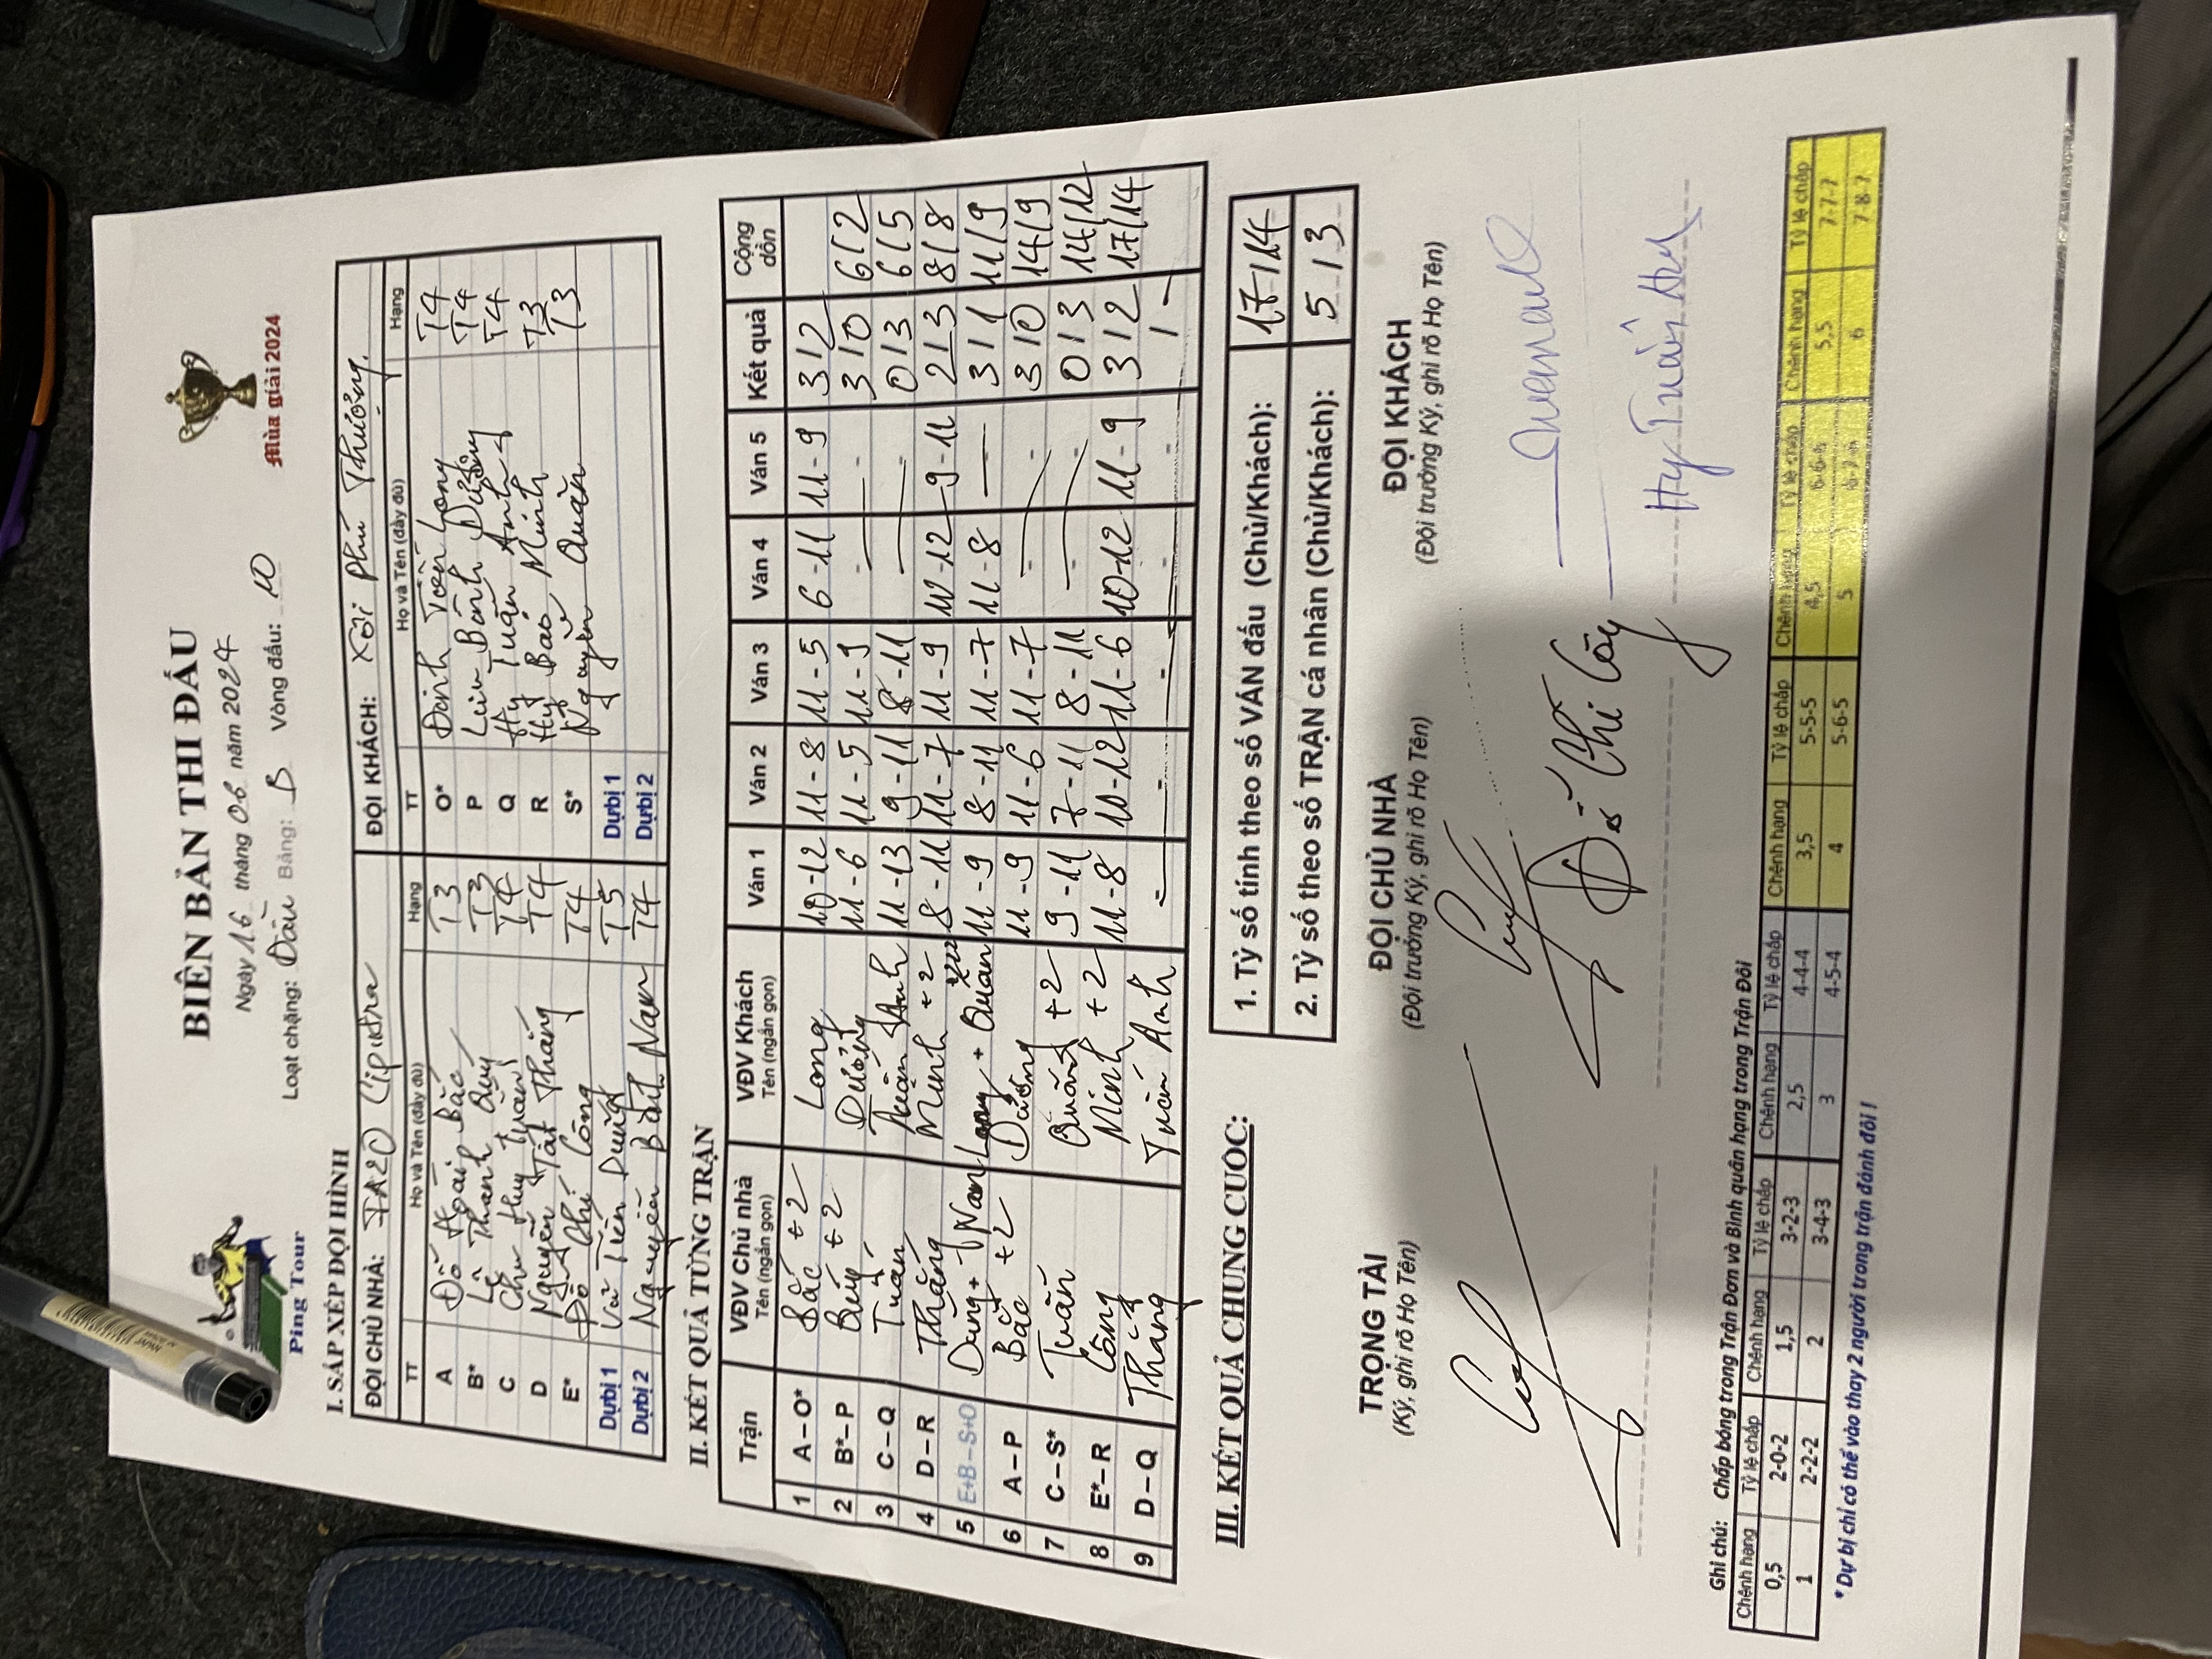 BIÊN BẢN THI ĐẤU
Ngày 16 tháng 06 năm 2024
Loạt chặng: Đầu Bảng: B Vòng đấu: 10
Ping Tour
Mùa giải 2024
I. SẮP XẾP ĐỘI HÌNH
ĐỘI CHỦ NHÀ: FA20 ĐỘI KHÁCH: Xôi Phú Thượng
TT Họ và Tên (đầy đủ) Hạng TT Họ và Tên (đầy đủ) Hạng
A Đỗ Hoài Bắc T3 O* Đinh Toàn Long T4
B* Lê Thanh Quý T3 P Lưu Bính Dưỡng T4
C Chu Huy Tuấn T4 Q Hy Tuấn Anh T4
D Nguyễn Tất Thắng T4 R Hy Bảo Minh T3
E* Đỗ Chí Công T4 S* Nguyễn Quân T3
Dự bị 1 Vũ Tiến Dũng T5 Dự bị 1
Dự bị 2 Nguyễn Bắc Nam T4 Dự bị 2
II. KẾT QUẢ TỪNG TRẬN
Trận VĐV Chủ nhà Tên (ngắn gọn) VĐV Khách Tên (ngắn gọn) Ván 1 Ván 2 Ván 3 Ván 4 Ván 5 Kết quả Cộng dồn
1 A – O* Bắc +2 Long 10-12 11-8 11-5 6-11 11-9 3/2
2 B* – P Quý +2 Dưỡng 11-6 11-5 11-9 - - 3/0 6/2
3 C – Q Tuấn Tuấn Anh 11-13 9-11 8-11 - - 0/3 6/5
4 D – R Thắng Minh +2 8-11 11-7 11-9 10-12 9-11 2/3 8/8
5 E+B – S+O Dũng + Nam Long + Quân 11-9 8-11 11-7 11-8 - 3/1 11/9
6 A – P Bắc +2 Dưỡng 11-9 11-6 11-7 - - 3/0 14/9
7 C – S* Tuấn Quân +2 9-11 7-11 8-11 - - 0/3 14/12
8 E* – R Công Minh +2 11-8 10-12 11-6 10-12 11-9 3/2 17/14
9 D – Q Thắng Tuấn Anh - - - - - / -
III. KẾT QUẢ CHUNG CUỘC:
1. Tỷ số tính theo số VÁN đấu (Chủ/Khách): 17/14
2. Tỷ số theo số TRẬN cá nhân (Chủ/Khách): 5/3
TRỌNG TÀI ĐỘI CHỦ NHÀ ĐỘI KHÁCH
(Ký, ghi rõ Họ Tên) (Đội trưởng Ký, ghi rõ Họ Tên) (Đội trưởng Ký, ghi rõ Họ Tên)
Đỗ Chí Công Hy Tuấn Anh
Ghi chú: Chấp bóng trong Trận Đơn và Bình quân hạng trong Trận Đôi
Chênh hạng Tỷ lệ chấp Chênh hạng Tỷ lệ chấp Chênh hạng Tỷ lệ chấp Chênh hạng Tỷ lệ chấp Chênh hạng Tỷ lệ chấp Chênh hạng Tỷ lệ chấp
0,5 2-0-2 1,5 3-2-3 2,5 4-4-4 3,5 5-5-5 4,5 6-6-6 5,5 7-7-7
1 2-2-2 2 3-4-3 3 4-5-4 4 5-6-5 5 6-7-6 6 7-8-7
* Dự bị chỉ có thể vào thay 2 người trong trận đánh đôi !